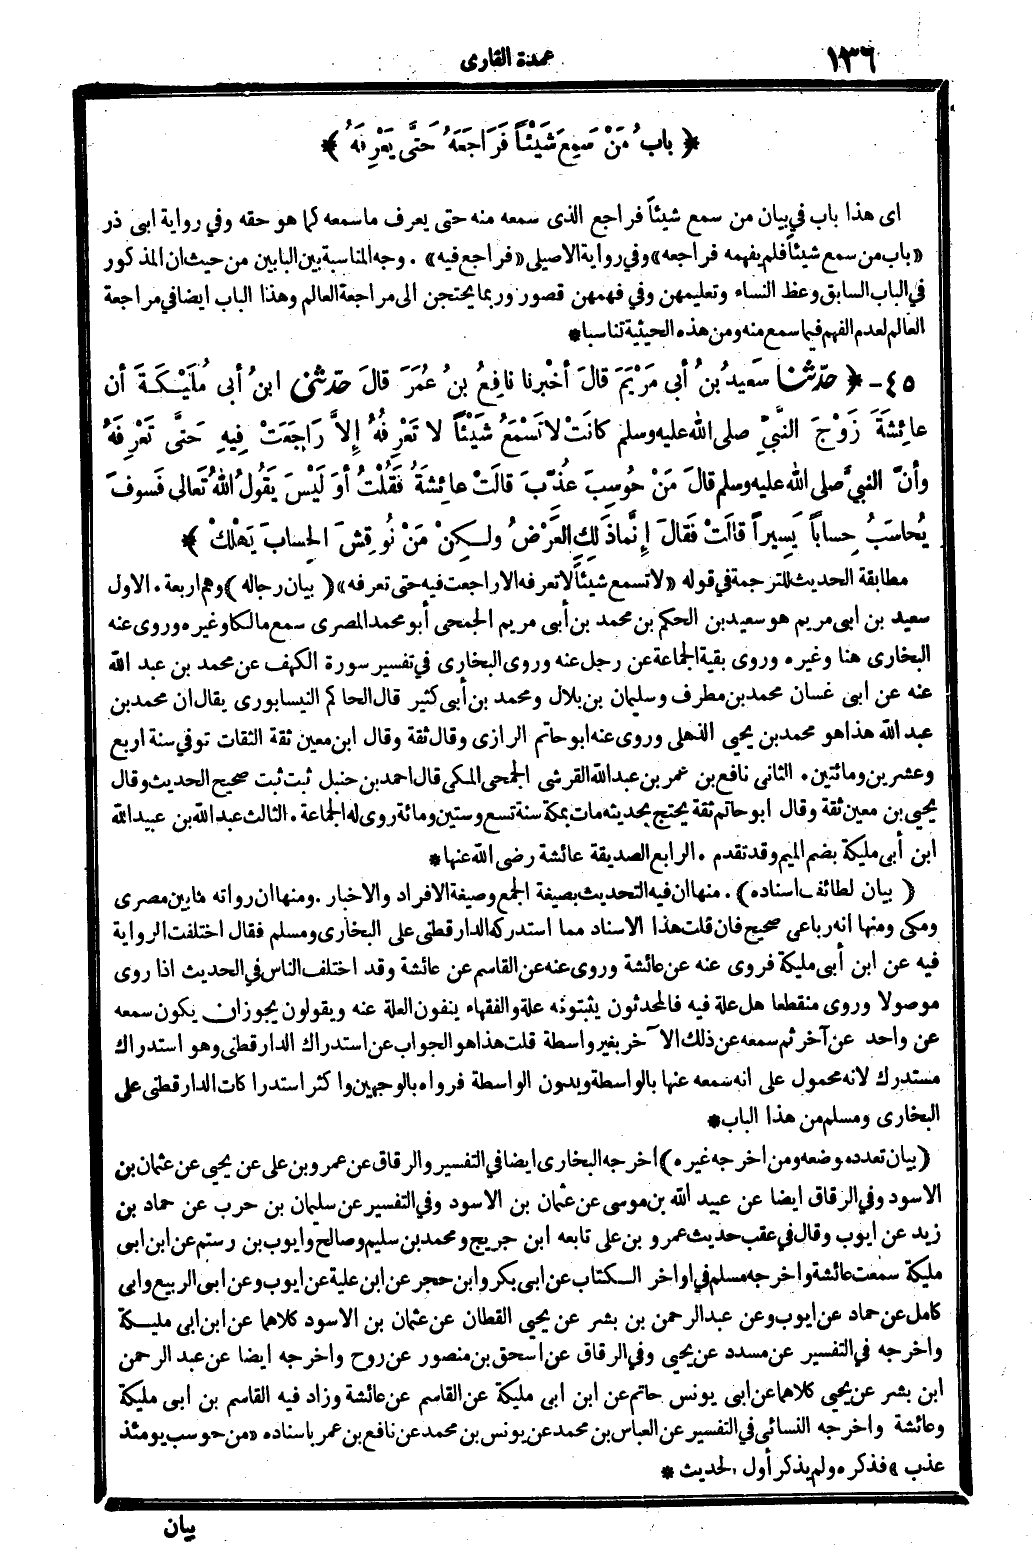 ١٣٦
عمدة القارى
﴿ بابُ مَنْ سَمِعَ شَيْئاً فَرَاجَعَهُ حَتَّى يَعْرِفَهُ ﴾
اى هذا باب في بيان من سمع شيئاً فراجع الذى سمعه منه حتى يعرف ماسمعه كما هو حقه وفي رواية ابى ذر
«باب من سمع شيئاً فلم يفهمه فراجعه» وفي رواية الاصيلى «فراجع فيه» . وجه المناسبة بين البابين من حيث ان المذكور
في الباب السابق وعظ النساء وتعليمهن وفي فهمهن قصور وربما يحتجن الى مراجعة العالم وهذا الباب ايضا في مراجعة
العالم لعدم الفهم فيما سمع منه ومن هذه الحيثية تناسبا *
٤٥ - ﴿ حَدَّثَنَا سَعِيدُ بنُ أبى مَرْيَمَ قالَ أخْبرنا نافِعُ بنُ عُمَرَ قالَ حَدَّثَنى ابنُ أبى مُلَيْكَةَ أن
عائِشَةَ زَوْجَ النَّبِيِّ صلى الله عليه وسلم كانَتْ لا تَسْمَعُ شَيْئاً لا تَعْرِفُهُ إلاَّ رَاجَعَتْ فِيهِ حَتَّى تَعْرِفَهُ
وأنَّ النبيَّ صلى الله عليه وسلم قالَ مَنْ حُوسِبَ عُذِّبَ قالَتْ عائِشَةُ فَقُلْتُ أوَ لَيْسَ يَقُولُ اللهُ تَعالى فَسوفَ
يُحاسَبُ حِساباً يَسِيراً قالَتْ فَقالَ إنَّما ذَلِكِ العَرْضُ ولكِنْ مَنْ نُوقِشَ الحِسابَ يَهْلكْ ﴾ *
مطابقة الحديث للترجمة في قوله «لا تسمع شيئاً لا تعرفه الا راجعت فيه حتى تعرفه» (بيان رجاله) وهم اربعة . الاول
سعيد بن ابى مريم هو سعيد بن الحكم بن محمد بن أبى مريم الجمحى أبو محمد المصرى سمع مالكا وغيره وروى عنه
البخارى هنا وغيره وروى بقية الجماعة عن رجل عنه وروى البخارى في تفسير سورة الكهف عن محمد بن عبد الله
عنه عن ابى غسان محمد بن مطرف وسليمان بن بلال ومحمد بن أبى كثير قال الحاكم النيسابورى يقال ان محمد بن
عبد الله هذا هو محمد بن يحيى الذهلى وروى عنه ابو حاتم الرازى وقال ثقة وقال ابن معين ثقة الثقات توفي سنة اربع
وعشرين ومائتين . الثانى نافع بن عمر بن عبدالله القرشى الجمحى المكى قال احمد بن حنبل ثبت ثبت صحيح الحديث وقال
يحيى بن معين ثقة وقال ابو حاتم ثقة يحتج بحديثه مات بمكة سنة تسع وستين ومائة روى له الجماعة . الثالث عبد الله بن عبيد الله
ابن أبى مليكة بضم الميم وقد تقدم . الرابع الصديقة عائشة رضى الله عنها *
(بيان لطائف اسناده) . منها ان فيه التحديث بصيغة الجمع وصيغة الافراد والاخبار . ومنها ان رواته مابين مصرى
ومكى ومنها انه رباعى صحيح فان قلت هذا الاسناد مما استدركه الدارقطنى على البخارى ومسلم فقال اختلفت الرواية
فيه عن ابن أبى مليكة فروى عنه عن عائشة وروى عنه عن القاسم عن عائشة وقد اختلف الناس في الحديث اذا روى
موصولا وروى منقطعا هل علة فيه فالمحدثون يثبتونه علة والفقهاء ينفون العلة عنه ويقولون يجوز ان يكون سمعه
عن واحد عن آخر ثم سمعه عن ذلك الآخر بغير واسطة قلت هذا هو الجواب عن استدراك الدارقطنى وهو استدراك
مستدرك لانه محمول على انه سمعه عنها بالواسطة وبدون الواسطة فرواه بالوجهين واكثر استدراكات الدارقطنى على
البخارى ومسلم من هذا الباب *
(بيان تعدد موضعه ومن اخرجه غيره) أخرجه البخارى ايضا في التفسير والرقاق عن عمرو بن على عن يحيى عن عثمان بن
الاسود وفي الرقاق ايضا عن عبيد الله بن موسى عن عثمان بن الاسود وفي التفسير عن سليمان بن حرب عن حماد بن
زيد عن ايوب وقال في عقب حديث عمرو بن على تابعه ابن جريج ومحمد بن سليم وصالح وايوب بن رستم عن ابن ابى
مليكة سمعت عائشة واخرجه مسلم في اواخر الكتاب عن ابى بكر وابن حجر عن ابن علية عن ايوب وعن ابى الربيع وابى
كامل عن حماد عن ايوب وعن عبد الرحمن بن بشر عن يحيى القطان عن عثمان بن الاسود كلاهما عن ابن ابى مليكة
واخرجه في التفسير عن مسدد عن يحيى وفي الرقاق عن اسحق بن منصور عن روح واخرجه ايضا عن عبد الرحمن
ابن بشر عن يحيى كلاهما عن ابى يونس حاتم عن ابن ابى مليكة عن القاسم عن عائشة وزاد فيه القاسم بن ابى مليكة
وعائشة واخرجه النسائى في التفسير عن العباس بن محمد عن يونس بن محمد عن نافع بن عمر باسناده «من حوسب يومئذ
عذب» فذكره ولم يذكر أول الحديث *
بيان